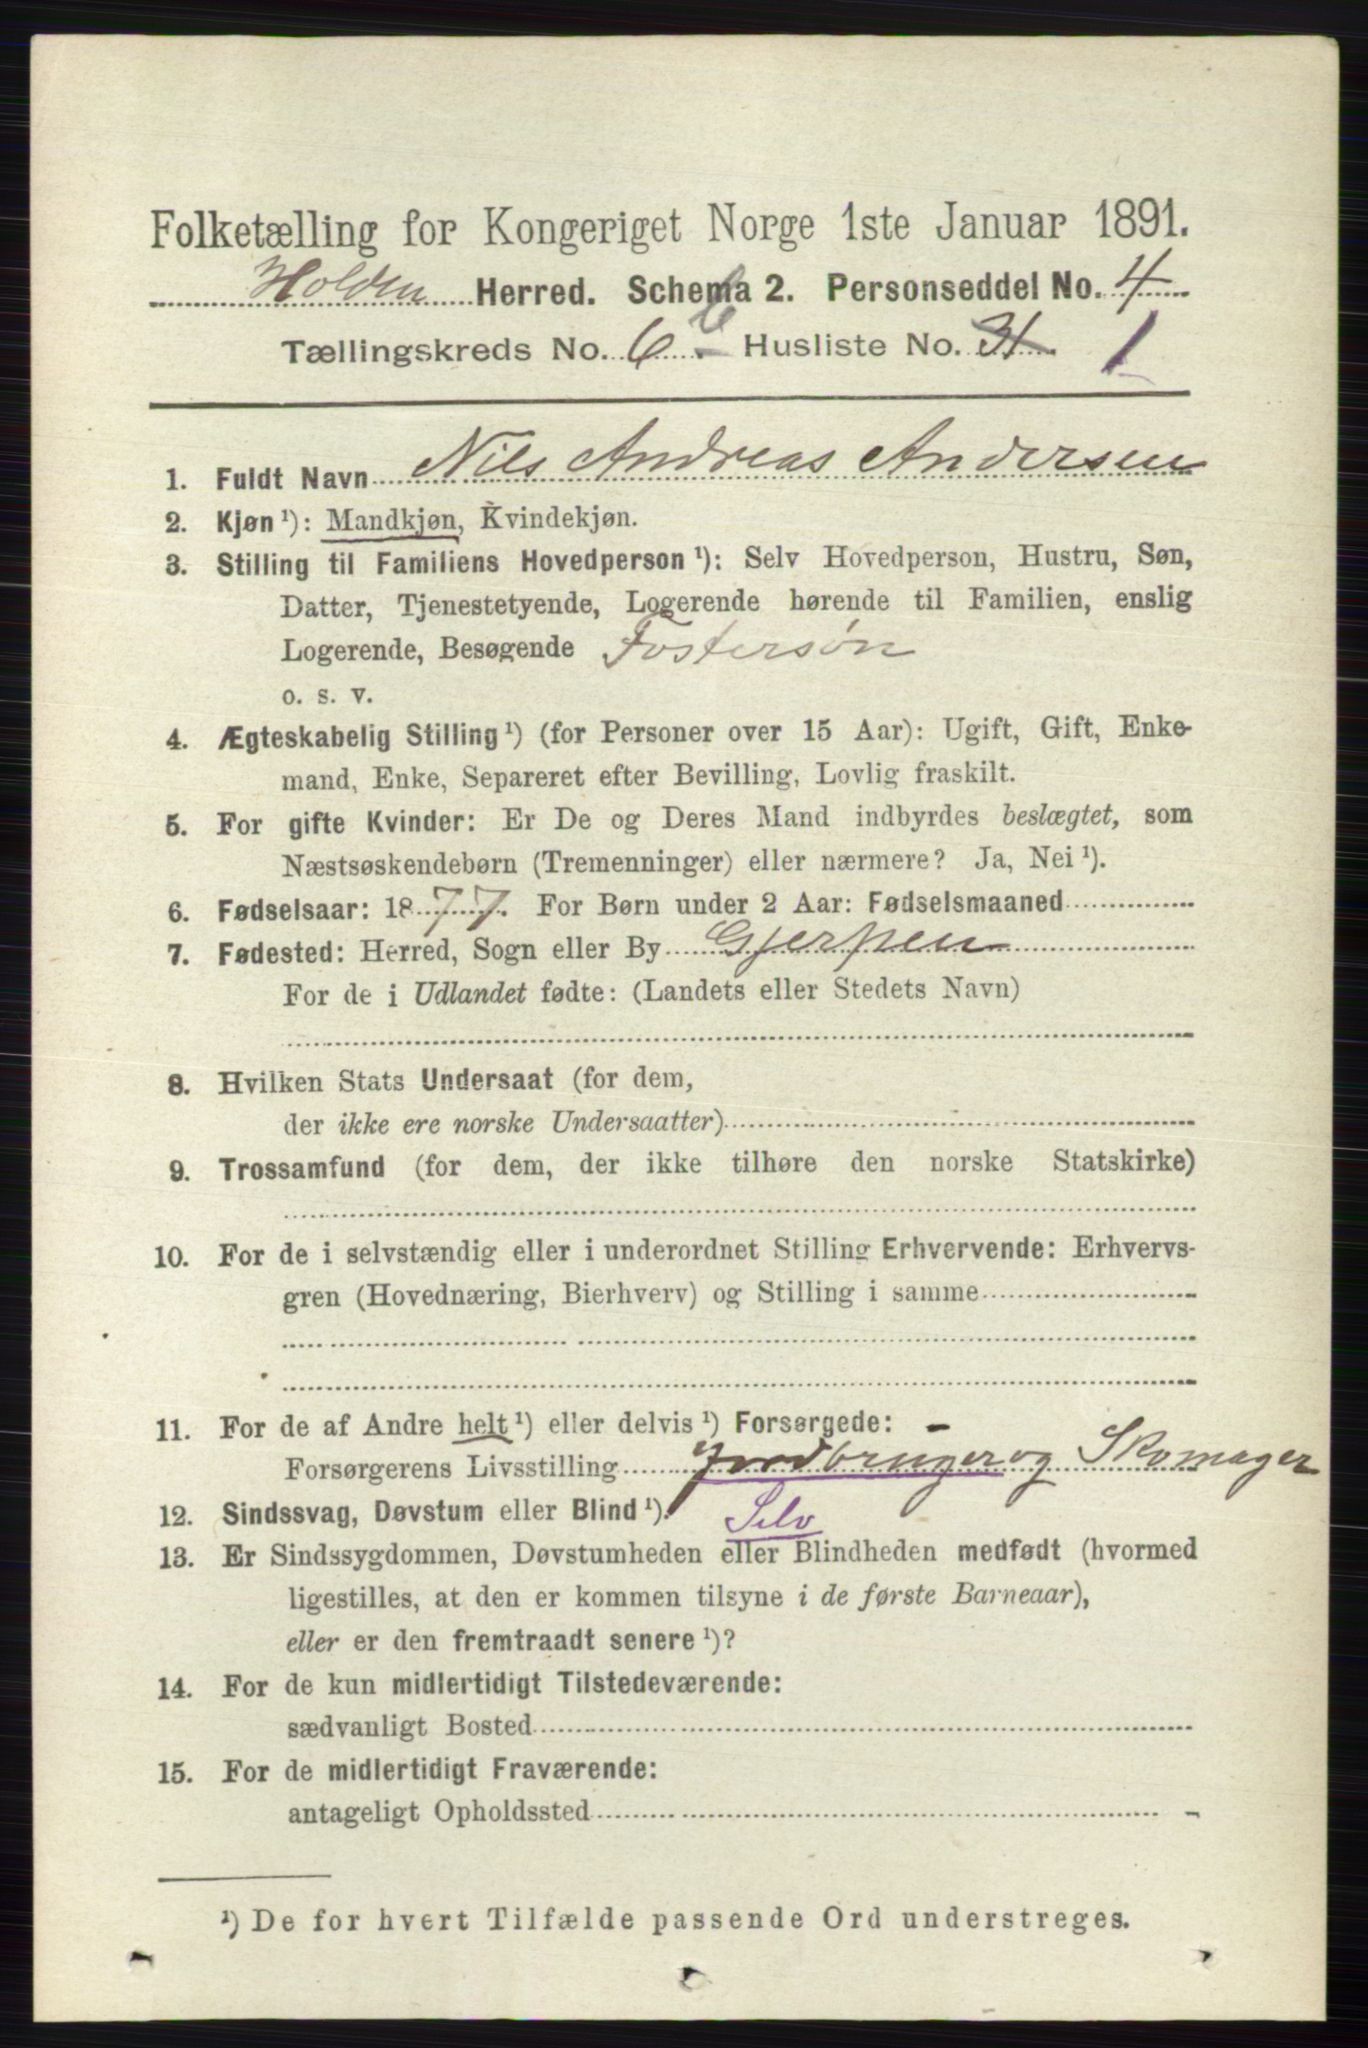 Folketælling for Kongeriget Norge 1ste Januar 1891.
Holden Herred. Schema 2. Personseddel No. 4
Tællingskreds No. 6 Husliste No. 1
1. Fuldt Navn Nils Andreas Andersen
2. Kjøn ¹): Mandkjøn, Kvindekjøn.
3. Stilling til Familiens Hovedperson ¹): Selv Hovedperson, Hustru, Søn,
Datter, Tjenestetyende, Logerende hørende til Familien, enslig
Logerende, Besøgende Fostersøn
o. s. v.
4. Ægteskabelig Stilling ¹) (for Personer over 15 Aar): Ugift, Gift, Enke-
mand, Enke, Separeret efter Bevilling, Lovlig fraskilt.
5. For gifte Kvinder: Er De og Deres Mand indbyrdes beslægtet, som
Næstsøskendebørn (Tremenninger) eller nærmere? Ja, Nei ¹).
6. Fødselsaar: 1877. For Børn under 2 Aar: Fødselsmaaned
7. Fødested: Herred, Sogn eller By Gjerpen
For de i Udlandet fødte: (Landets eller Stedets Navn)
8. Hvilken Stats Undersaat (for dem,
der ikke ere norske Undersaatter)
9. Trossamfund (for dem, der ikke tilhøre den norske Statskirke)
10. For de i selvstændig eller i underordnet Stilling Erhvervende: Erhvervs-
gren (Hovednæring, Bierhverv) og Stilling i samme
11. For de af Andre helt ¹) eller delvis ¹) Forsørgede:
Forsørgerens Livsstilling Jordbruger og Skomager
12. Sindssvag, Døvstum eller Blind ¹). Selv
13. Er Sindssygdommen, Døvstumheden eller Blindheden medfødt (hvormed
ligestilles, at den er kommen tilsyne i de første Barneaar),
eller er den fremtraadt senere ¹)?
14. For de kun midlertidigt Tilstedeværende:
sædvanligt Bosted
15. For de midlertidigt Fraværende:
antageligt Opholdssted
¹) De for hvert Tilfælde passende Ord understreges.